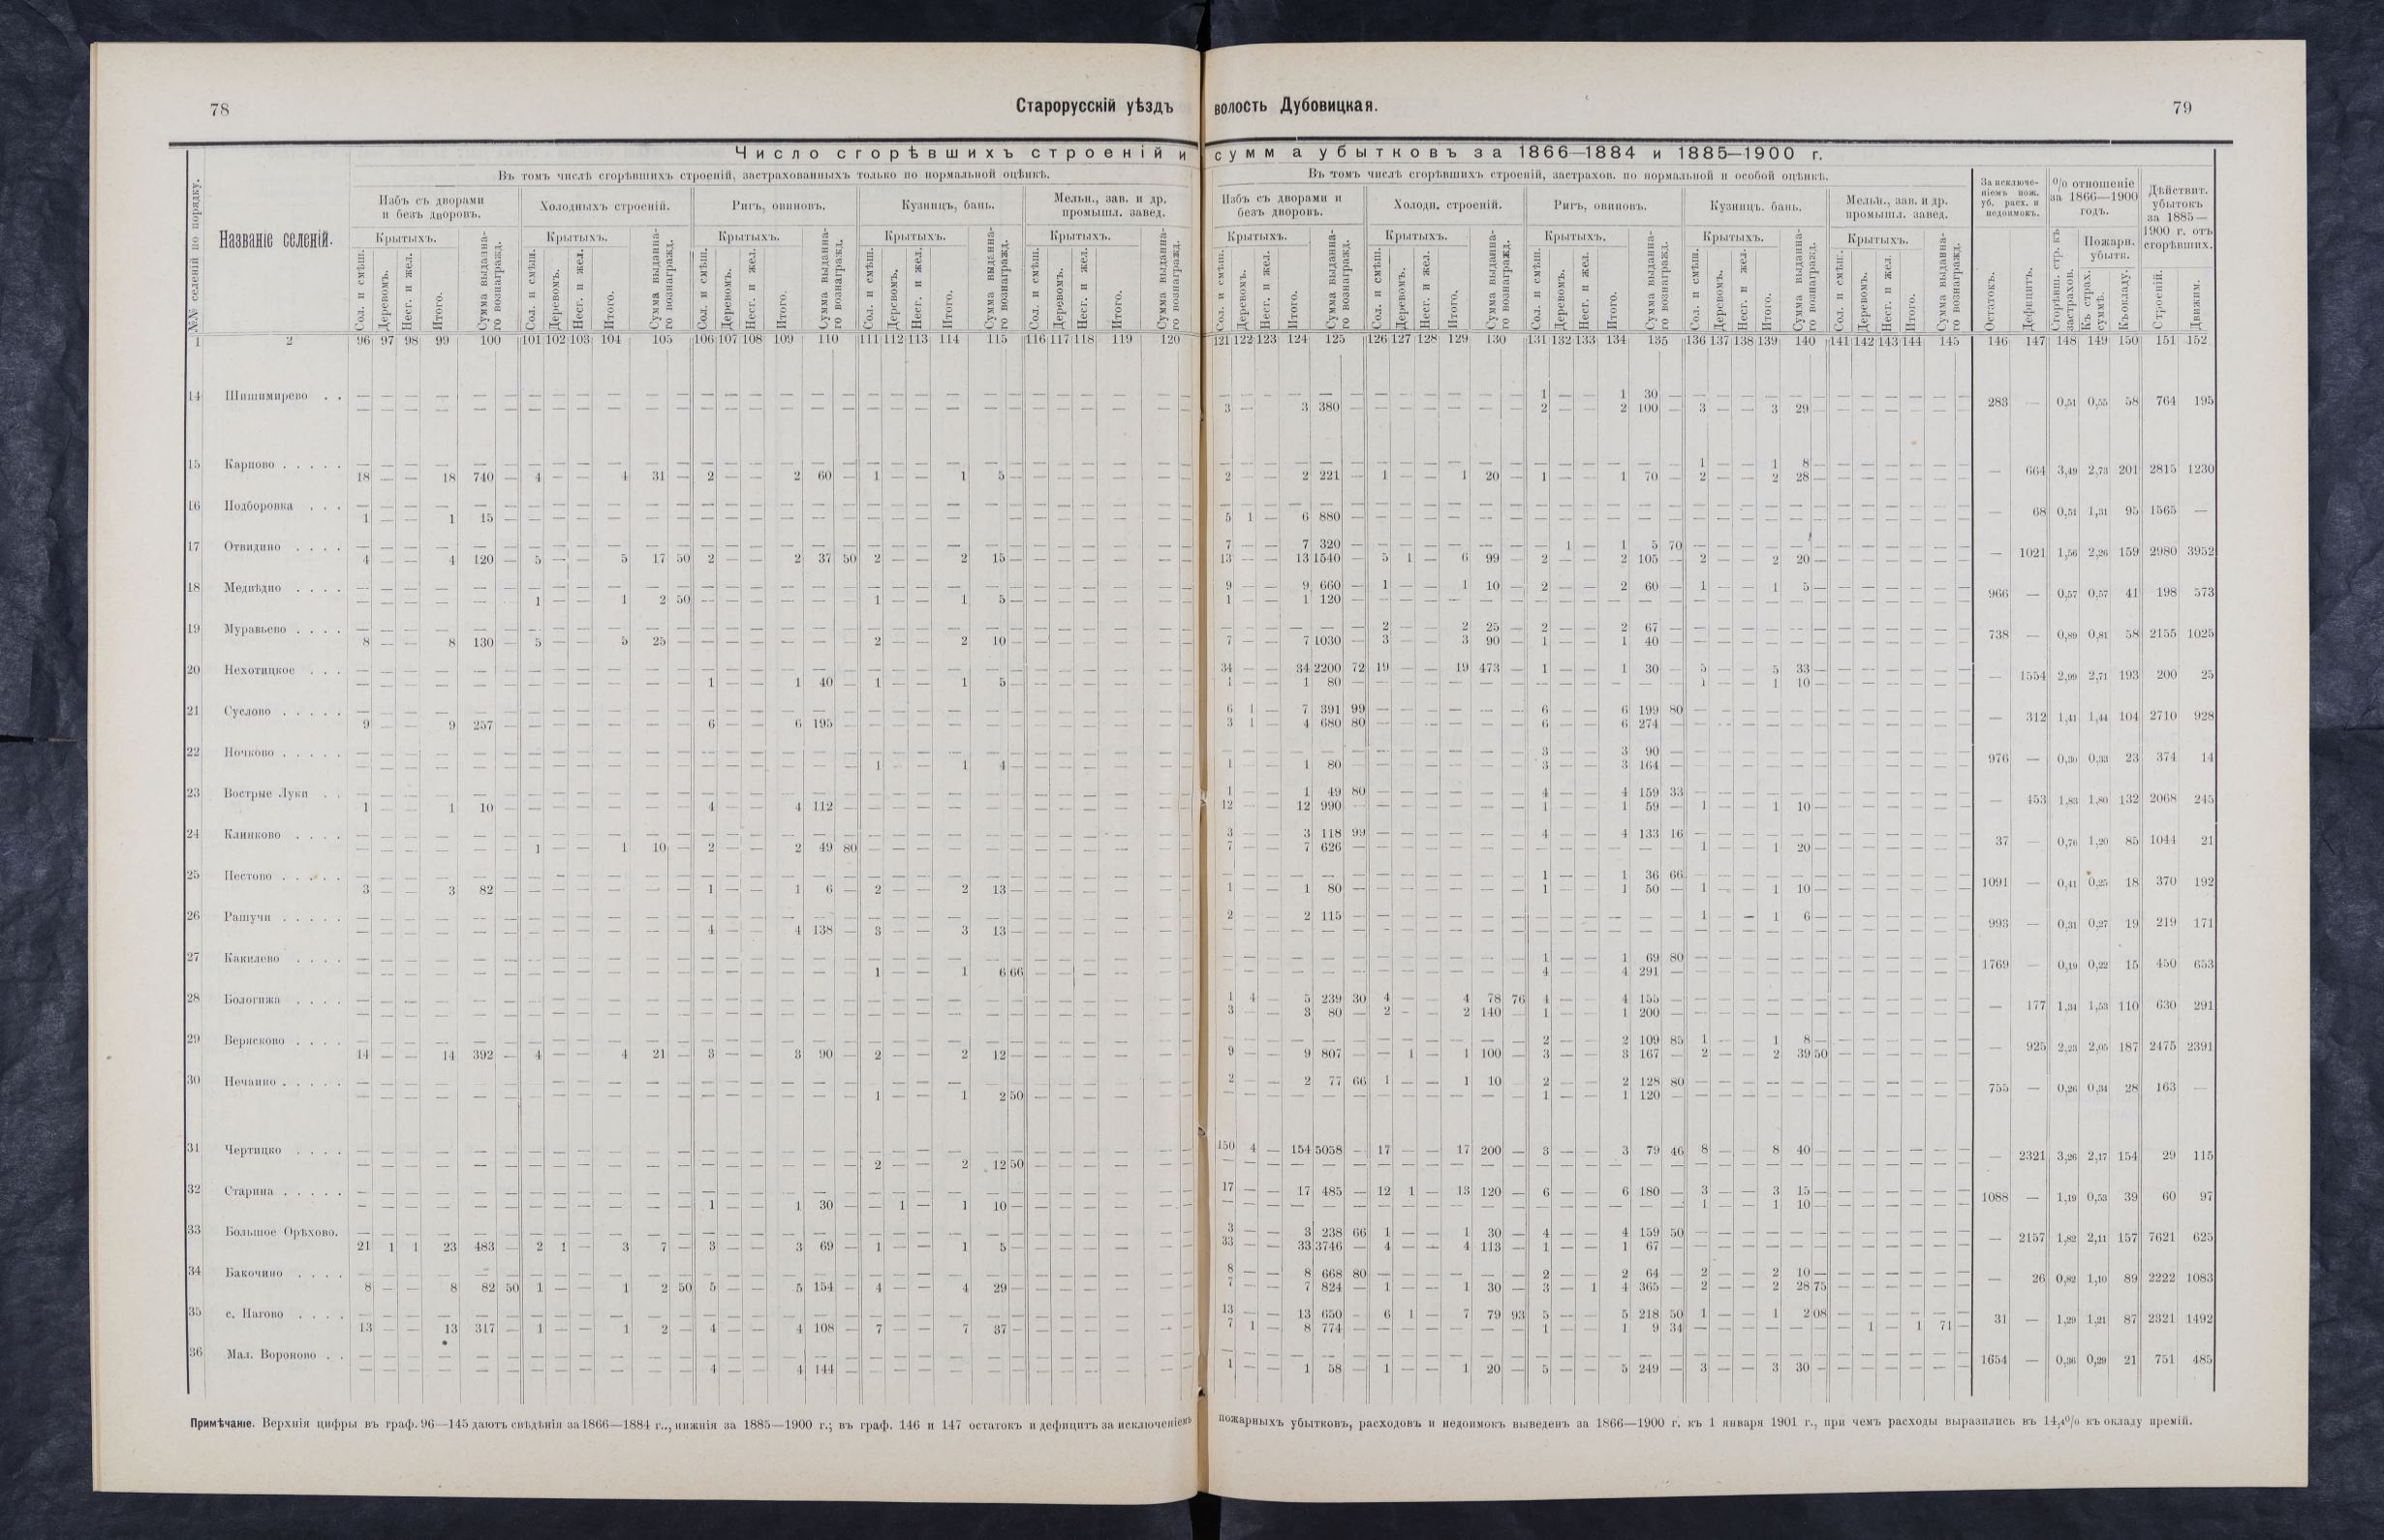 78
Старорусскій уѣздъ
волость Дубовицкая.
79
Число сгорѣвшихъ строеній и
сумма убытковъ за 1866—1884 и 1885—1900 г.
№№ селеній по порядку.
Названіе селеній.
Въ томъ числѣ сгорѣвшихъ строеній, застрахованныхъ только по нормальной оцѣнкѣ.
Въ томъ числѣ сгорѣвшихъ строеній, застрахов. по нормальной и особой оцѣнкѣ.
Избъ съ дворами и безъ дворовъ.
Холодныхъ строеній.
Ригъ, овиновъ.
Кузницъ, бань.
Мельн., зав. и др. промышл. завед.
Избъ съ дворами и безъ дворовъ.
Холодн. строеній.
Ригъ, овиновъ.
Кузницъ. бань.
Мельн., зав. и др. промышл. завед.
За исключеніемъ пож. уб. расх. и недоимокъ.
% отношеніе за 1866—1900 годъ.
Дѣйствит. убытокъ за 1885—1900 г. отъ сгорѣвшихъ.
Крытыхъ.
Сол. и смѣш.
Деревомъ.
Несг. и жел.
Итого.
Сумма выданнаго вознагражд.
Остатокъ.
Дефицитъ.
Сгорѣвш. стр. къ застрахов.
Пожарн. убытк.
Къ страх. суммѣ.
Къ окладу.
Строеній.
Движим.
1 2 96 97 98 99 100 101 102 103 104 105 106 107 108 109 110 111 112 113 114 115 116 117 118 119 120
121 122 123 124 125 126 127 128 129 130 131 132 133 134 135 136 137 138 139 140 141 142 143 144 145 146 147 148 149 150 151 152
14 Шишимирево . . — — — — — — — — — — — — — — — — — — — — — — — — — — — — — — 1 — — 1 30 —
3 — 3 380 — — — — — — 2 — — 2 100 3 — — 3 29 — — — — — — 283 — 0,51 0,55 58 764 195
15 Карцово . . . . . — — — — — — — — — — — — 1 — — 1 8 —
18 — — 18 740 — 4 — — 4 31 — 2 — — 2 60 — 1 — — 1 5 — — — — — — 2 — — 2 221 — 1 — — 1 20 — 1 — — 1 70 — 2 — — 2 28 — — — — — — — 664 3,49 2,73 201 2815 1230
16 Подборовка . . . — — — — — — — — — —
1 — — 1 15 — — — — — — — — — — — — — 5 1 — 6 880 — — — — — — — — — — — 68 0,51 1,31 95 1565 —
17 Отвидино . . . . — — — — — — 7 — — 7 320 — — — — — — — 1 — 1 5 70 — — — — —
4 — — 4 120 — 5 — — 5 17 50 2 — — 2 37 50 2 — — 2 15 — — — — — — 13 — — 13 1540 — 5 1 — 6 99 — 2 — — 2 105 — 2 — — 2 20 — — — — — — — 1021 1,56 2,26 159 2980 3952
18 Медвѣдно . . . . — — — — — — 9 — — 9 660 — 1 — — 1 10 — 2 — — 2 60 — 1 — — 1 5 —
— — — — — — 1 — — 1 2 50 — — — — — — 1 — — 1 5 — — — — — — 1 — — 1 120 — — — — — — 966 — 0,57 0,57 41 198 573
19 Муравьево . . . . — — — — — — 2 — — 2 25 — 2 — — 2 67 —
8 — — 8 130 — 5 — — 5 25 — — — — — — — 2 — — 2 10 — — — — — — 7 — — 7 1030 — 3 — — 3 90 — 1 — — 1 40 — — — — — — 738 — 0,89 0,81 58 2155 1025
20 Нехотицкое . . . — — — — — — 34 — — 34 2200 72 19 — — 19 473 — 1 — — 1 30 — 5 — — 5 33 —
— — — — — — 1 — — 1 40 — 1 — — 1 5 — — — — — — 1 — — 1 80 — — — — — — 1 — — 1 10 — — — — — — — 1554 2,99 2,71 193 200 25
21 Суслово . . . . . — — — — — — 6 1 — 7 391 99 — — — — — — 6 — — 6 199 80 — — — — —
9 — — 9 257 — — — — — — — 6 — — 6 195 — — — — — — — 3 1 — 4 680 80 — — — — — — 6 — — 6 274 — — — — — — — 312 1,41 1,44 104 2710 928
22 Ночково . . . . . — — — — — — 3 — — 3 90 —
— — — — — — 1 — — 1 4 — — — — — — 1 — — 1 80 — — — — — — 3 — — 3 164 — — — — — — 976 — 0,30 0,33 23 374 14
23 Вострые Луки . . — — — — — — 1 — — 1 49 80 — — — — — — 4 — — 4 159 33 — — — — —
1 — — 1 10 — — — — — — — 4 — — 4 112 — — — — — — — 12 — — 12 990 — — — — — — 1 — — 1 59 — 1 — — 1 10 — — — — — — — 453 1,83 1,80 132 2068 245
24 Клинково . . . . — — — — — — 3 — — 3 118 99 — — — — — — 4 — — 4 133 16 — — — — —
— — — — — — 1 — — 1 10 — 2 — — 2 49 80 — — — — — — 7 — — 7 626 — — — — — — 1 — — 1 20 — — — — — — 37 — 0,76 1,20 85 1044 21
25 Пестово . . . . . — — — — — — 1 — — 1 36 66 — — — — —
3 — — 3 82 — — — — — — — 1 — — 1 6 — 2 — — 2 13 — — — — — — 1 — — 1 80 — — — — — — 1 — — 1 50 — 1 — — 1 10 — — — — — — 1091 — 0,41 0,25 18 370 192
26 Рашучи . . . . . — — — — — — 2 — — 2 115 — — — — — — — 1 — — 1 6 —
— — — — — — 4 — — 4 138 — 3 — — 3 13 — — — — — — 993 — 0,31 0,27 19 219 171
27 Какилево . . . . — — — — — — 1 — — 1 69 80 — — — — —
— — — — — — 1 — — 1 6 66 — — — — — 4 — — 4 291 — — — — — — 1769 — 0,19 0,22 15 450 653
28 Бологижа . . . . — — — — — — 1 4 — 5 239 30 4 — — 4 78 76 4 — — 4 155 — — — — — —
— — — — — — 3 — — 3 80 — 2 — — 2 140 — 1 — — 1 200 — — — — — — — 177 1,34 1,53 110 630 291
29 Верясково . . . . — — — — — — 2 — — 2 109 85 1 — — 1 8 —
14 — — 14 392 — 4 — — 4 21 — 3 — — 3 90 — 2 — — 2 12 — — — — — — 9 — — 9 807 — — 1 — 1 100 — 3 — — 3 167 — 2 — — 2 39 50 — — — — — — 925 2,23 2,05 187 2475 2391
30 Нечаино . . . . . — — — — — — 2 — — 2 77 66 1 — — 1 10 — 2 — — 2 128 80 — — — — —
— — — — — — 1 — — 1 2 50 — — — — — 1 — — 1 120 — — — — — — 755 — 0,26 0,34 28 163 —
31 Чертицко . . . . — — — — — — 150 4 — 154 5058 — 17 — — 17 200 — 3 — — 3 79 46 8 — — 8 40 —
— — — — — — 2 — — 2 12 50 — — — — — — 2321 3,26 2,17 154 29 115
32 Старина . . . . . — — — — — — 17 — — 17 485 — 12 1 — 13 120 — 6 — — 6 180 — 3 — — 3 15 —
— — — — — — 1 — — 1 30 — — 1 — 1 10 — — — — — — 1 — — 1 10 — — — — — — 1088 — 1,19 0,53 39 60 97
33 Большое Орѣхово. — — — — — — 3 — — 3 238 66 1 — — 1 30 — 4 — — 4 159 50 — — — — —
21 1 1 23 483 — 2 1 — 3 7 — 3 — — 3 69 — 1 — — 1 5 — — — — — — 33 — — 33 3746 — 4 — — 4 113 — 1 — — 1 67 — — — — — — — 2157 1,82 2,11 157 7621 625
34 Бакочино . . . . — — — — — — 8 — — 8 668 80 — — — — — — 2 — — 2 64 — 2 — — 2 10 —
8 — — 8 82 50 1 — — 1 2 50 5 — — 5 154 — 4 — — 4 29 — — — — — — 7 — — 7 824 — 1 — — 1 30 — 3 — 1 4 365 — 2 — — 2 28 75 — — — — — — 26 0,82 1,10 89 2222 1083
35 с. Нагово . . . . — — — — — — 13 — — 13 650 — 6 1 — 7 79 93 5 — — 5 218 50 1 — — 1 2 08
13 — — 13 317 — 1 — — 1 2 — 4 — — 4 108 — 7 — — 7 37 — — — — — — 7 1 — 8 774 — — — — — — 1 — — 1 9 34 — — — — — 1 — 1 71 — 31 — 1,29 1,21 87 2321 1492
36 Мал. Вороново . . — — — — — —
— — — — — — 4 — — 4 144 — — — — — — — 1 — — 1 58 — 1 — — 1 20 — 5 — — 5 249 — 3 — — 3 30 — — — — — — 1654 — 0,36 0,29 21 751 485
Примѣчаніе. Верхнія цифры въ граф. 96—145 даютъ свѣдѣнія за 1866—1884 г.., нижнія за 1885—1900 г.; въ граф. 146 и 147 остатокъ и дефицитъ за исключеніемъ
пожарныхъ убытковъ, расходовъ и недоимокъ выведенъ за 1866—1900 г. къ 1 января 1901 г., при чемъ расходы выразились въ 14,4% къ окладу премій.